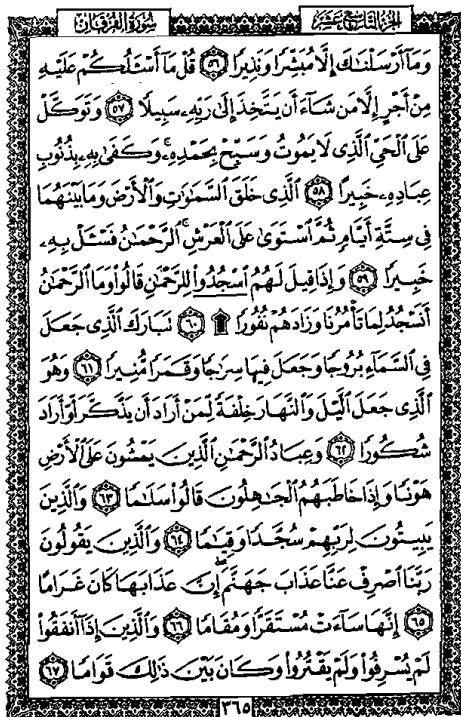 الجزء التاسع عشر سورة الفرقان
وَمَآ أَرْسَلْنَٰكَ إِلَّا مُبَشِّرًا وَنَذِيرًا ٥٦ قُلْ مَآ أَسْـَٔلُكُمْ عَلَيْهِ
مِنْ أَجْرٍ إِلَّا مَن شَآءَ أَن يَتَّخِذَ إِلَىٰ رَبِّهِۦ سَبِيلًا ٥٧ وَتَوَكَّلْ
عَلَى ٱلْحَىِّ ٱلَّذِى لَا يَمُوتُ وَسَبِّحْ بِحَمْدِهِۦ ۚ وَكَفَىٰ بِهِۦ بِذُنُوبِ
عِبَادِهِۦ خَبِيرًا ٥٨ ٱلَّذِى خَلَقَ ٱلسَّمَٰوَٰتِ وَٱلْأَرْضَ وَمَا بَيْنَهُمَا
فِى سِتَّةِ أَيَّامٍ ثُمَّ ٱسْتَوَىٰ عَلَى ٱلْعَرْشِ ۚ ٱلرَّحْمَٰنُ فَسْـَٔلْ بِهِۦ
خَبِيرًا ٥٩ وَإِذَا قِيلَ لَهُمُ ٱسْجُدُوا۟ لِلرَّحْمَٰنِ قَالُوا۟ وَمَا ٱلرَّحْمَٰنُ
أَنَسْجُدُ لِمَا تَأْمُرُنَا وَزَادَهُمْ نُفُورًا ۩ ٦٠ تَبَارَكَ ٱلَّذِى جَعَلَ
فِى ٱلسَّمَآءِ بُرُوجًا وَجَعَلَ فِيهَا سِرَٰجًا وَقَمَرًا مُّنِيرًا ٦١ وَهُوَ
ٱلَّذِى جَعَلَ ٱلَّيْلَ وَٱلنَّهَارَ خِلْفَةً لِّمَنْ أَرَادَ أَن يَذَّكَّرَ أَوْ أَرَادَ
شُكُورًا ٦٢ وَعِبَادُ ٱلرَّحْمَٰنِ ٱلَّذِينَ يَمْشُونَ عَلَى ٱلْأَرْضِ
هَوْنًا وَإِذَا خَاطَبَهُمُ ٱلْجَٰهِلُونَ قَالُوا۟ سَلَٰمًا ٦٣ وَٱلَّذِينَ
يَبِيتُونَ لِرَبِّهِمْ سُجَّدًا وَقِيَٰمًا ٦٤ وَٱلَّذِينَ يَقُولُونَ
رَبَّنَا ٱصْرِفْ عَنَّا عَذَابَ جَهَنَّمَ ۖ إِنَّ عَذَابَهَا كَانَ غَرَامًا
٦٥ إِنَّهَا سَآءَتْ مُسْتَقَرًّا وَمُقَامًا ٦٦ وَٱلَّذِينَ إِذَآ أَنفَقُوا۟
لَمْ يُسْرِفُوا۟ وَلَمْ يَقْتُرُوا۟ وَكَانَ بَيْنَ ذَٰلِكَ قَوَامًا ٦٧
٣٦٥